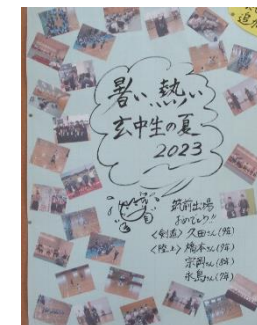 暑い 熱い
玄中生の夏
2023
筑前出場
おめでとう!!
〈剣道〉久田さん(9年)
〈陸上〉橋本さん(9年)
宗岡さん(8年)
永島さん(7年)